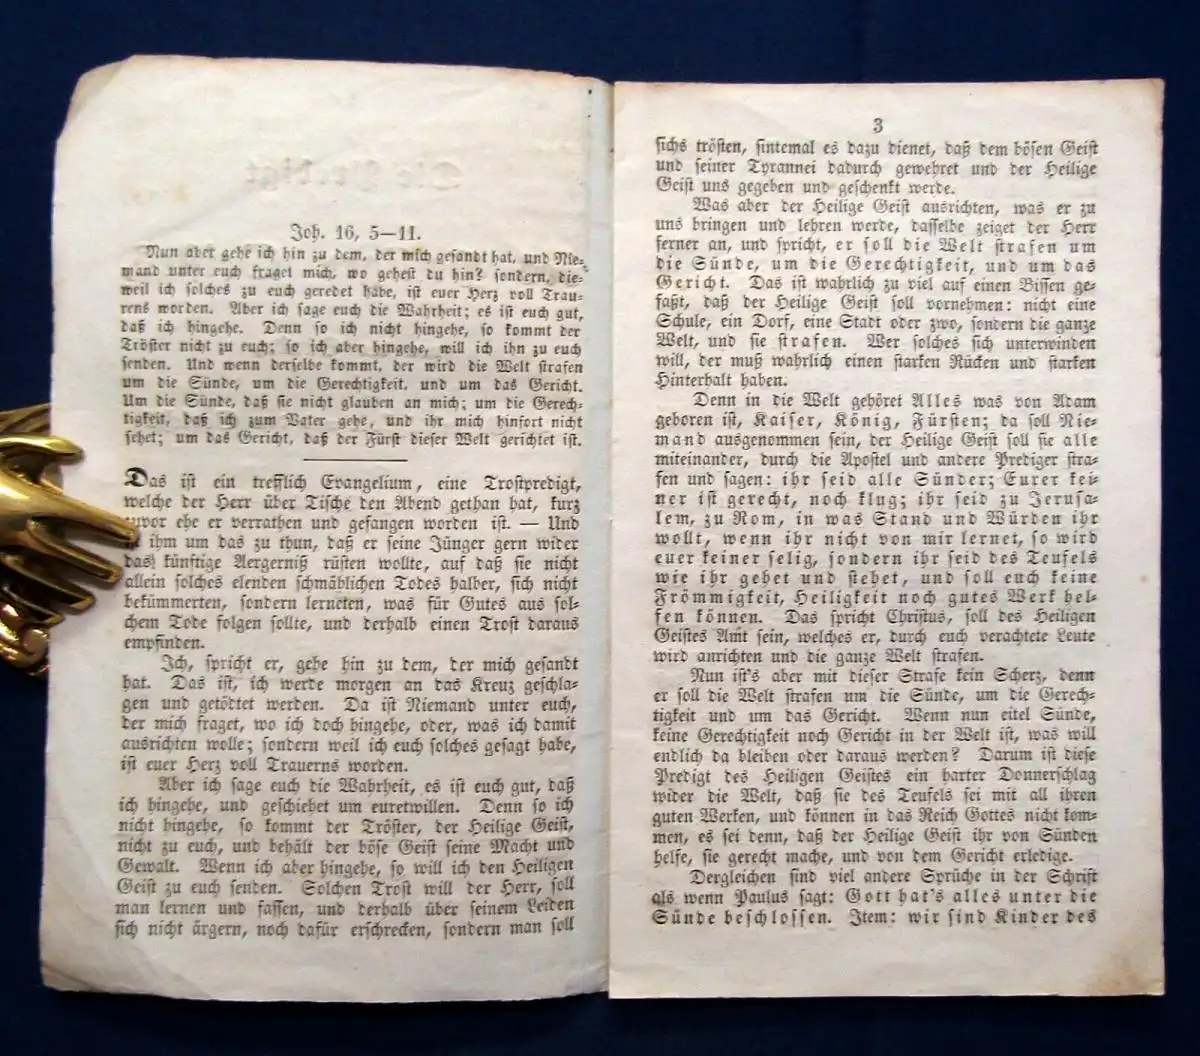 Joh. 16, 5—11.
Nun aber gehe ich hin zu dem, der mich gesandt hat, und Nie-
mand unter euch fraget mich, wo gehest du hin? sondern, die-
weil ich solches zu euch geredet habe, ist euer Herz voll Trau-
rens worden. Aber ich sage euch die Wahrheit; es ist euch gut,
daß ich hingehe. Denn so ich nicht hingehe, so kommt der
Tröster nicht zu euch; so ich aber hingehe, will ich ihn zu euch
senden. Und wenn derselbe kommt, der wird die Welt strafen
um die Sünde, um die Gerechtigkeit, und um das Gericht.
Um die Sünde, daß sie nicht glauben an mich; um die Gerech-
tigkeit, daß ich zum Vater gehe, und ihr mich hinfort nicht
sehet; um das Gericht, daß der Fürst dieser Welt gerichtet ist.
Das ist ein trefflich Evangelium, eine Trostpredigt,
welche der Herr über Tische den Abend gethan hat, kurz
zuvor ehe er verrathen und gefangen worden ist. — Und
ihm um das zu thun, daß er seine Jünger gern wider
das künftige Aergerniß rüsten wollte, auf daß sie nicht
allein solches elenden schmählichen Todes halber, sich nicht
bekümmerten, sondern lerneten, was für Gutes aus sol-
chem Tode folgen sollte, und derhalb einen Trost daraus
empfinden.
Ich, spricht er, gehe hin zu dem, der mich gesandt
hat. Das ist, ich werde morgen an das Kreuz geschla-
gen und getödtet werden. Da ist Niemand unter euch,
der mich fraget, wo ich doch hingehe, oder, was ich damit
ausrichten wolle; sondern weil ich euch solches gesagt habe,
ist euer Herz voll Trauerns worden.
Aber ich sage euch die Wahrheit, es ist euch gut, daß
ich hingehe, und geschiehet um euretwillen. Denn so ich
nicht hingehe, so kommt der Tröster, der Heilige Geist,
nicht zu euch, und behält der böse Geist seine Macht und
Gewalt. Wenn ich aber hingehe, so will ich den Heiligen
Geist zu euch senden. Solchen Trost will der Herr, soll
man lernen und fassen, und derhalb über seinem Leiden
sich nicht ärgern, noch dafür erschrecken, sondern man soll
3
sichs trösten, sintemal es dazu dienet, daß dem bösen Geist
und seiner Tyrannei dadurch gewehret und der Heilige
Geist uns gegeben und geschenkt werde.
Was aber der Heilige Geist ausrichten, was er zu
uns bringen und lehren werde, dasselbe zeiget der Herr
ferner an, und spricht, er soll die Welt strafen um
die Sünde, um die Gerechtigkeit, und um das
Gericht. Das ist wahrlich zu viel auf einen Bissen ge-
faßt, daß der Heilige Geist soll vornehmen: nicht eine
Schule, ein Dorf, eine Stadt oder zwo, sondern die ganze
Welt, und sie strafen. Wer solches sich unterwinden
will, der muß wahrlich einen starken Rücken und starken
Hinterhalt haben.
Denn in die Welt gehöret Alles was von Adam
geboren ist, Kaiser, König, Fürsten; da soll Nie-
mand ausgenommen sein, der Heilige Geist soll sie alle
miteinander, durch die Apostel und andere Prediger stra-
fen und sagen: ihr seid alle Sünder; Eurer kei-
ner ist gerecht, noch klug; ihr seid zu Jerusa-
lem, zu Rom, in was Stand und Würden ihr
wollt, wenn ihr nicht von mir lernet, so wird
euer keiner selig, sondern ihr seid des Teufels
wie ihr gehet und stehet, und soll euch keine
Frömmigkeit, Heiligkeit noch gutes Werk hel-
fen können. Das spricht Christus, soll des Heiligen
Geistes Amt sein, welches er, durch euch verachtete Leute
wird anrichten und die ganze Welt strafen.
Nun ist's aber mit dieser Strafe kein Scherz, denn
er soll die Welt strafen um die Sünde, um die Gerech-
tigkeit und um das Gericht. Wenn nun eitel Sünde,
keine Gerechtigkeit noch Gericht in der Welt ist, was will
endlich da bleiben oder daraus werden? Darum ist diese
Predigt des Heiligen Geistes ein harter Donnerschlag
wider die Welt, daß sie des Teufels sei mit all ihren
guten Werken, und können in das Reich Gottes nicht kom-
men, es sei denn, daß der Heilige Geist ihr von Sünden
helfe, sie gerecht mache, und von dem Gericht erledige.
Dergleichen sind viel andere Sprüche in der Schrift
als wenn Paulus sagt: Gott hat's alles unter die
Sünde beschlossen. Item: wir sind Kinder des